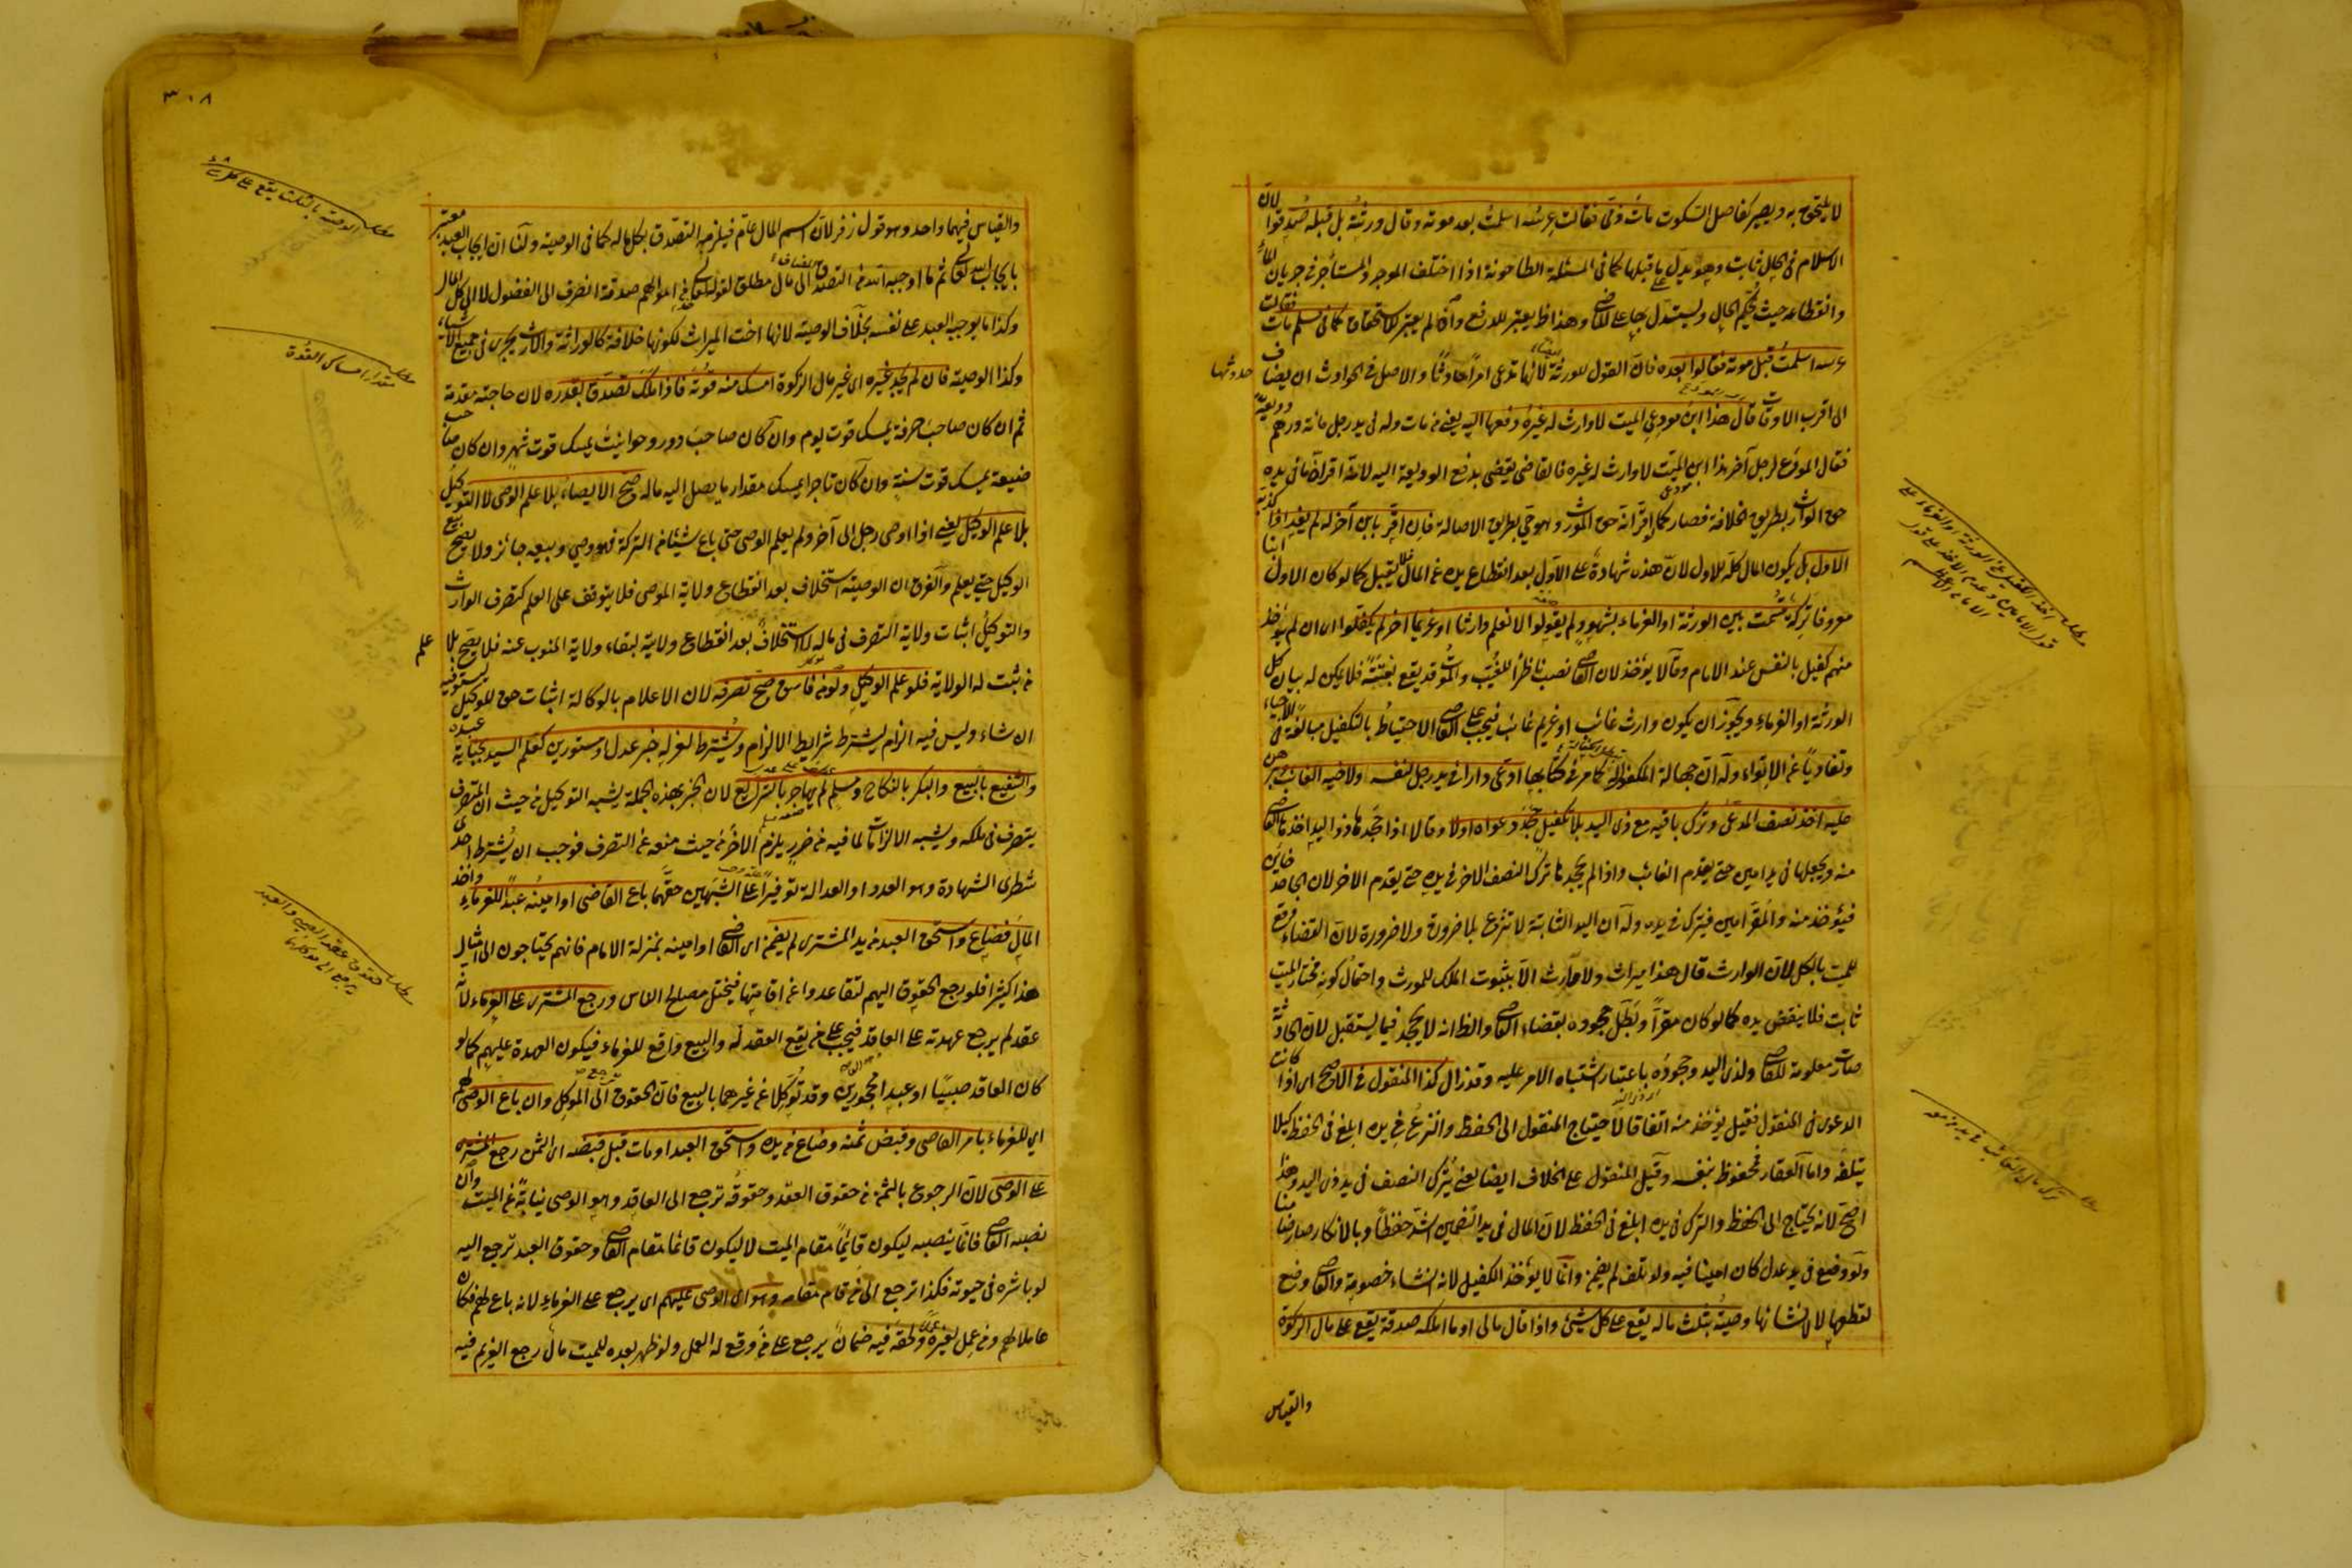 لا يلتحق به ويصير كفاصل السكوت مات ذمّى فقالت عرسُه اسلمتُ بعد موته وقال ورثتُه بل قبله صُدِّقوا لانّ
الاسلام فى الحال ثابت وهو يدل على ما قبلها كما فى المسئلة الطاحونة اذا اختلف الموجر والمستأجر فى جريان الماء
وانقطاعه حيث يُحكم الحال ويستدل بها على الماضى وهذا ظ يعتبر للدفع وان لم يعتبر للاستحقاق كما فى مسلم مات فقالت
عرسه اسلمتُ قبل موته فقالوا بعده فانّ القول للورثة ايضا لانها تدعى امرًا حادثًا والاصل فى الحوادث ان يضاف حدوثها
الى اقرب الاوقات قال هذا ابنُ مودِعى الميت لا وارث له غيرُه دفعها اليه يعنى من مات وله فى يد رجل مائة درهم وديعة
فقال المودَع لرجل آخر هذا ابن الميّت لا وارث له غيره فالقاضى يقضى بدفع الوديعة اليه لانه اقرانّ ما فى يده
حق الوارث بطريق الخلافة فصار كما اقرّ انه حق المورث وهو حى بطريق الاصالة فان اقرّ بابن آخر له لم يفد اذا كذبه
الاول بل يكون المال كلّه للاول لانّ هذه شهادة على الاول بعد انقطاع يده عن المال فلا يقبل كما لو كان الاول ابنا
معروفا تركة قُسمت بين الورثة او الغرماء بشهود لم يقولوا لا نعلم وارثا او غريما آخر لم يكفلوا اى ان لم يؤخذ
منهم كفيل بالنفس عند الامام وقالا يؤخذ لان القاضى نصب ناظرًا للغُيّب والموتُ قد يقع بغتةً فلا يمكن له بيان كل
الورثة او الغرماء ويجوز ان يكون وارث غائب او غريم غائب فيجب على القاضى الاحتياطُ بالتكفيل مبالغة فى الاحياء
وتفاديًا عن الاتواء وله انّ جهالة المكفول له كما مر فى كتابها ادعى دارا فى يد رجل لنفسه ولاخيه الغائب برهن
عليه اخذ نصف المدعى وترك باقيه مع ذى اليد بلا تكفيل جحد دعواه او لا وقالا اذا جحدها ذو اليد اخذها القاضى
منه ويجعلها فى يد امين حتى يقدم الغائب واذا لم يجحدها ترك النصف الآخر فى يده حتى يقدم الآخر لان الجاحد خائن
فيؤخذ منه والمُقرّ امين فيترك فى يده وله ان اليد الثابتة لا تنزع بلا ضرورة ولا ضرورة لانّ القضاء وقع
للميت بالكل لانّ الوارث قال هذا ميراث ولا ارث الا بثبوت الملك للمورث واحتمال كونه مختار الميت
ثابت فلا ينقض يده كما لو كان مقرًّا وبَطَلَ جحوده بقضاء القاضى والظ انه لا يجحد فيما يستقبل لانّ الحادثة
صارت معلومة للقاضى ولذى اليد وجحودُه باعتبار اشتباه الامر عليه وقد زال كذا المنقول فى الاصح اى اذا كانت
الدعوى فى المنقول فقيل يؤخذ منه اتفاقا لاحتياج المنقول الى الحفظ والنزعُ من يده ابلغ فى الحفظ كيلا
يتلفه واما العقار فمحفوظ بنفسه وقيل المنقول على الخلاف ايضا يعنى يُترك النصف فى يد ذى اليد وهذا
اصحّ لانه يحتاج الى الحفظ والترك فى يده ابلغ فى الحفظ لان المال فى يد الضمين اشدّ حفظًا وبالانكار صار ضامنا
ولو وضع فى يد عدل كان امينا فيه ولو تلف لم يضمن وانما لا يؤخذ الكفيل لانه انشاء خصومة والقاضى وضع
لقطعها لا لانشائها وصيةُ بثلث ماله يقع على كل شيئ واذا قال مالى او ما املكه صدقة يقع على مال الزكوة
والقياس
اخذ الكفيل من الورثة او الغرماء على
قول الامامين وعدم الاخذ على قول
الامام الاعظم
٣٠٨
والقياس فيهما واحد وهو قول زفر لانّ اسم المال عامّ فيلزمه التصدق بكل ماله كما فى الوصية ولنا ان ايجاب العبد معتبر
بايجاب الله تعالى ثم ما اوجبه الله من التصدق المضاف الى مال مطلق لقوله تعالى خذ من اموالهم صدقة انصرف الى الفضول لا الى كل المال
وكذا ما يوجبه العبد على نفسه بخلاف الوصية لانها اخت الميراث لكونها خلافة كالوراثة والارث يجرى فى جميع الاشياء
وكذا الوصية فان لم يجد غيره اى غير مال الزكوة امسك منه قُوتَه فاذا ملك تصدّق بقدره لان حاجته مقدمة
ثم ان كان صاحب حرفة يمسك قوت يوم وان كان صاحب دور وحوانيت يمسك قوت شهر وان كان صاحب
ضيعة يمسك قوت سنة وان كان تاجرا يمسك مقدار ما يصل اليه ماله صحّ الايصاء بلا علم الوصى لا التوكيل
بلا علم الوكيل يعنى اذا اوصى رجل الى آخر ولم يعلم الوصى حتى باع شيئا من التركة فهو وصى وبيعه جائز ولا يصح بيع
الوكيل حتى يعلم والفرق ان الوصية استخلاف بعد انقطاع ولاية الموصى فلا يتوقف على العلم كتصرف الوارث
والتوكيلُ اثبات ولاية التصرف فى ماله لا استخلاف بعد انقطاع ولاية لبقاء ولاية المنوب عنه فلا يصح بلا علم
من ثبت له الولاية فلو علم الوكيل ولو من فاسق صحّ تصرفه لان الاعلام بالوكالة اثبات حق للوكيل يستوفيه
ان شاء وليس فيه الزام ليشترط شرايط الالزام ويُشترط لعزله خبر عدل او مستورين كعلم السيد بجناية عبده
والشفيع بالبيع والبكر بالنكاح ومسلم لم يهاجر بالشرائع لان الخبر بهذه الجملة يشبه التوكيل من حيث ان المتصرف
يتصرف فى ملكه ويشبه الالزامات لما فيه من ضرر يلزم الآخر من حيث منعه عن التصرف فوجب ان يُشترط احدى
شطرى الشهادة وهو العدد او العدالة توفيرًا على الشبهين حقَّهما باع القاضى او امينُه عبدًا للغرماء واخذ
المال فضاع واستحق العبد من يد المشترى لم يضمن اى القاضى او امينه بمنزلة الامام فانهم يحتاجون الى امثال
هذا كثيرا فلو رجع الحقوق اليهم لتقاعدوا عن اقامتها فيختل مصالح الناس ورجع المشترى على الغرماء لانه
عقد لم يرجع عهدته على العاقد فيجب على من يقع العقد له والبيع واقع للغرماء فيكون العهدة عليهم كما لو
كان العاقد صبيًا او عبدا محجورين وقد توكلا عن غيرهما بالبيع فان الحقوق ترجع الى الموكل وان باع الوصى لهم
اى للغرماء بامر القاضى وقبض ثمنه وضاع من يده واستحق العبد او مات قبل قبضه اى الثمن رجع المشترى
على الوصى لانّ الرجوع بالثمن من حقوق العقد وحقوقُه ترجع الى العاقد وهو الوصى نيابةً عن الميت وان
نصبه القاضى فانما ينصبه ليكون قائما مقام الميت لا ليكون قائما مقام القاضى وحقوق العبد ترجع اليه
لو باشره فى حيوته فكذا ترجع الى من قام مقامه وهو اى الوصى عليهم اى يرجع على الغرماء لانه باع لهم فكان
عاملا لهم ومن عمل لغيره عملا ولحقه فيه ضمان يرجع على من وقع له العمل ولو ظهر بعده للميت مال رجع الغريم فيه
مقدار امساك القُوت
حقوق عقد الصبى والعبد
يرجع الى موكلهما